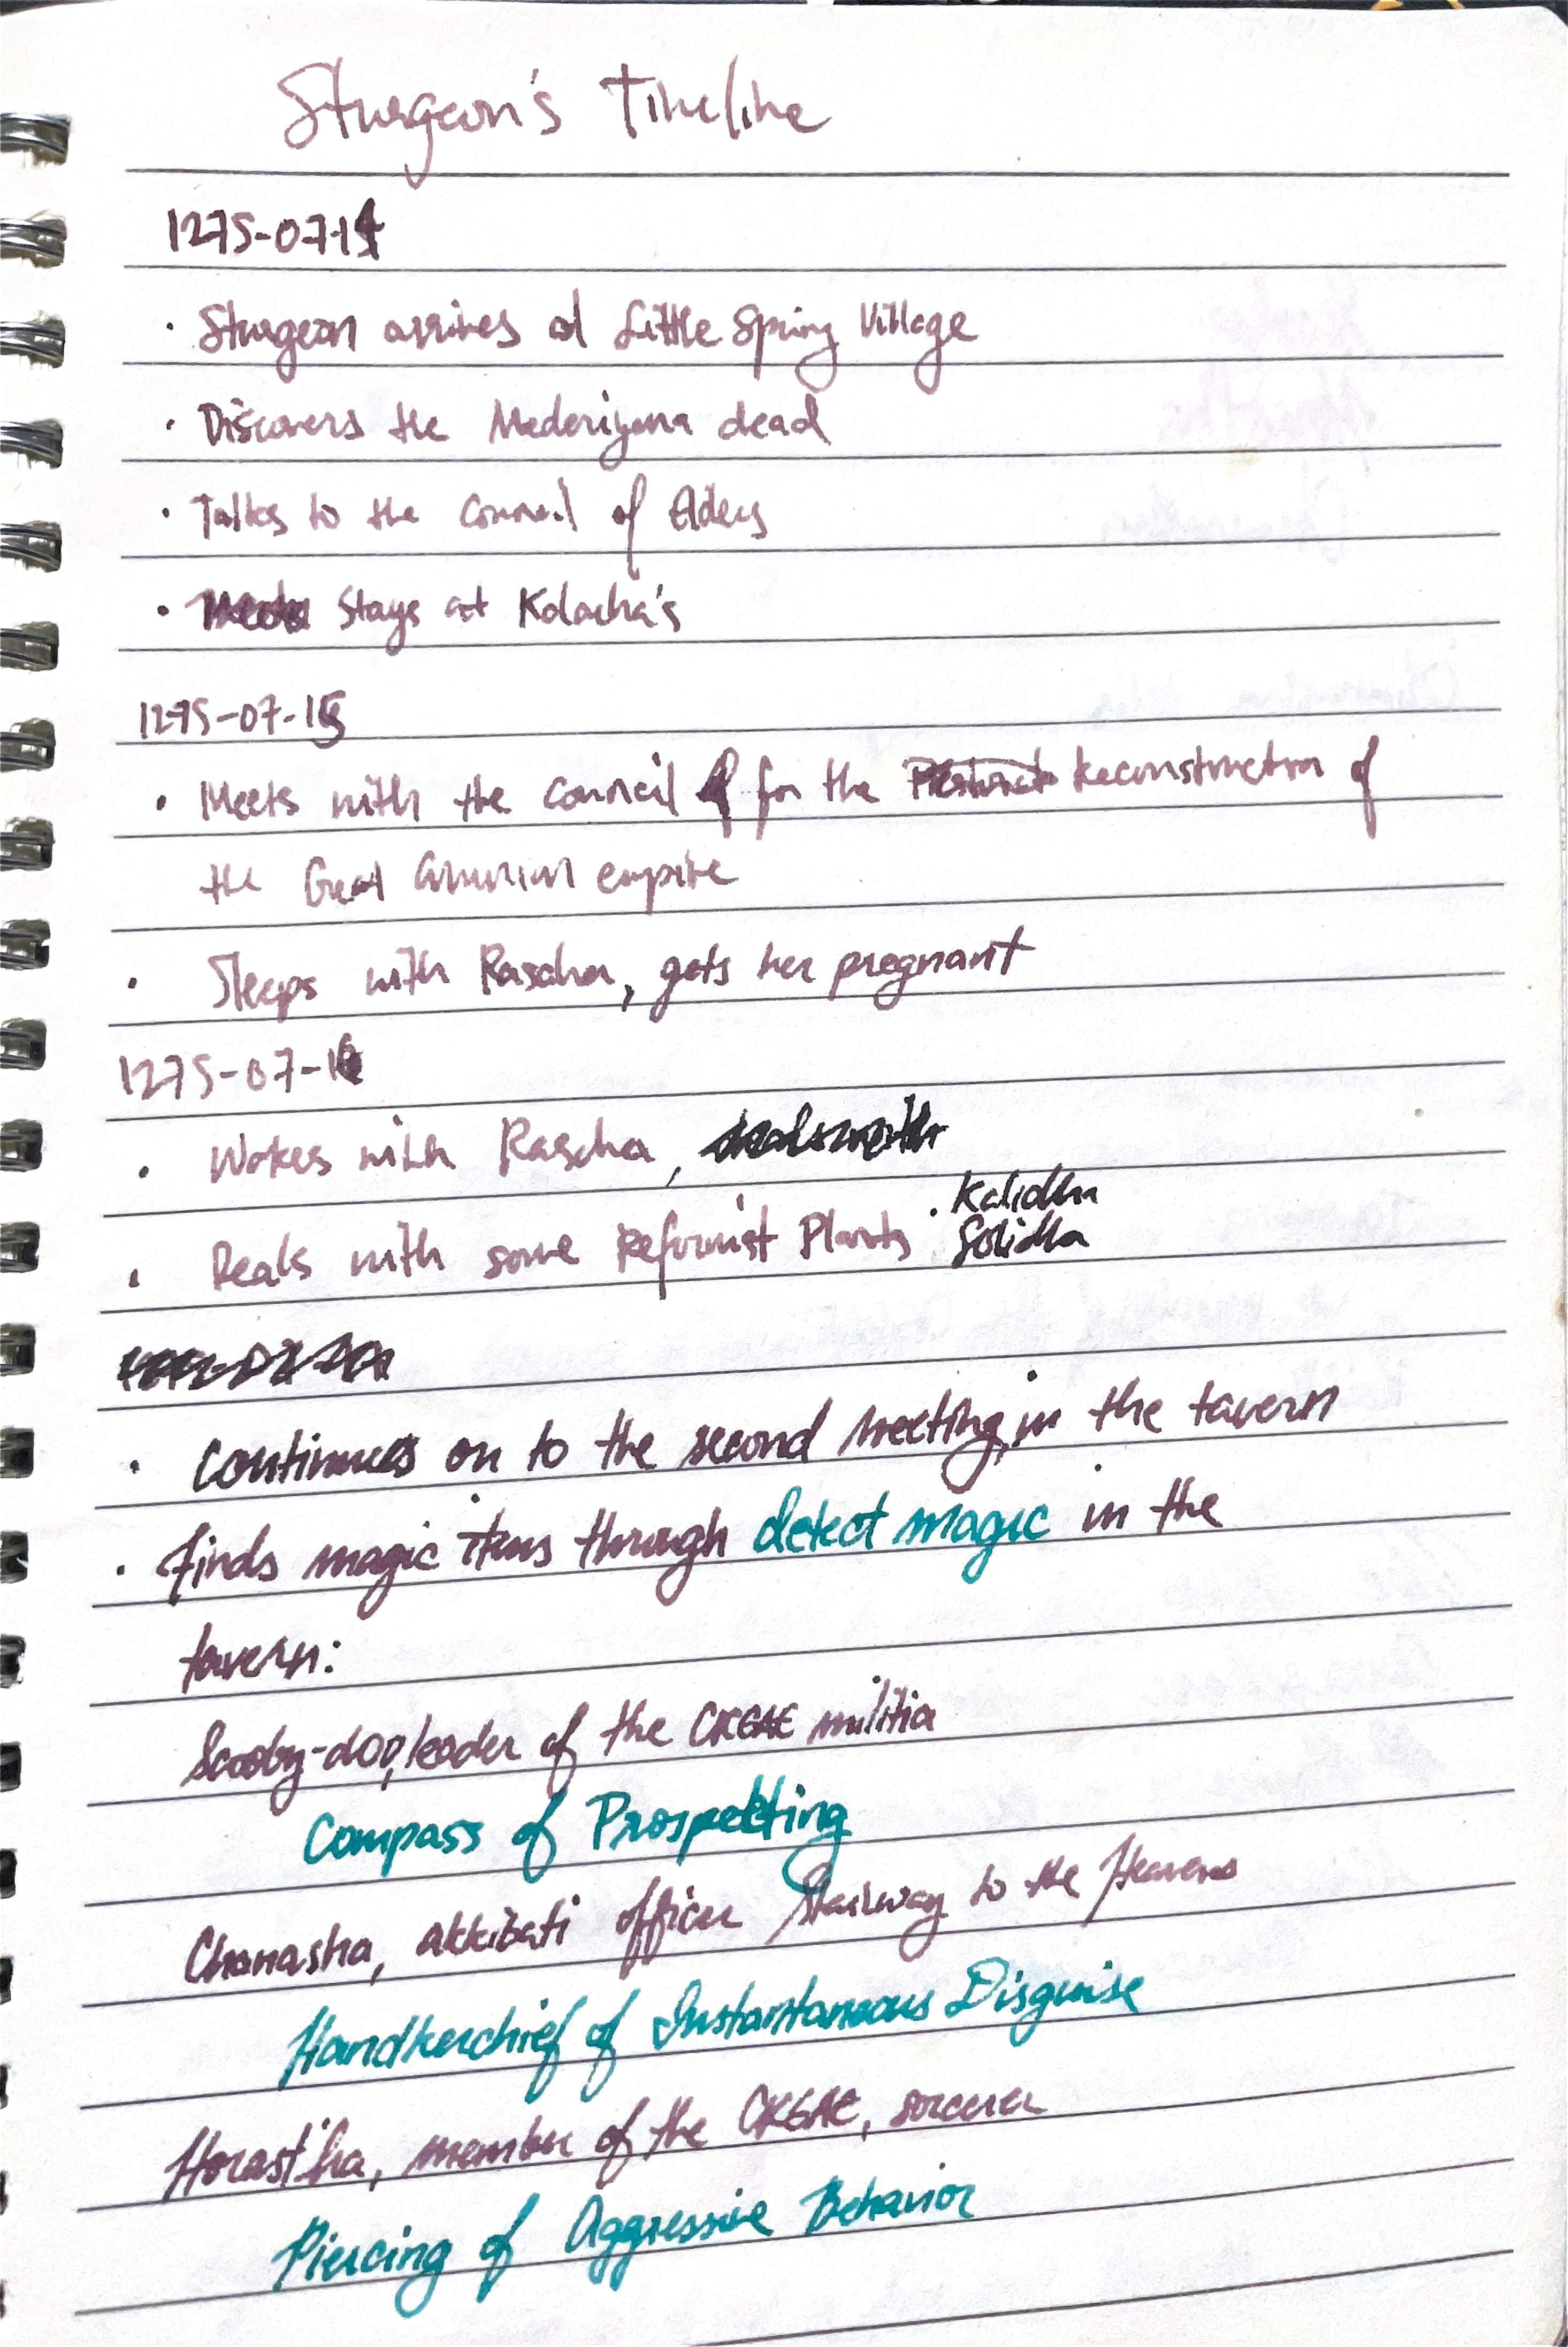 Sturgeon's Timeline
1275-07-14
· Sturgeon arrives at Little Spring Village
· Discovers the Maderiyana dead
· Talks to the Council of Elders
· Stays at Kolacha's
1275-07-15
· Meets with the council for the Reconstruction of
the Great empire
· Sleeps with Rascha, gets her pregnant
1275-07-16
· Wakes with Rascha,
· Deals with some Reformist Plants · Kalidha
Solidha
· Continues on to the second meeting, in the tavern
· finds magic items through detect magic in the
tavern:
Scooby-doo, leader of the CRGAE militia
Compass of Prospekting
Chanasha, akkibati officer Stairway to the Heavens
Handkerchief of Instantaneous Disguise
Horast'ha, member of the CRGAE, sorcerer
Piercing of Aggressive Behavior